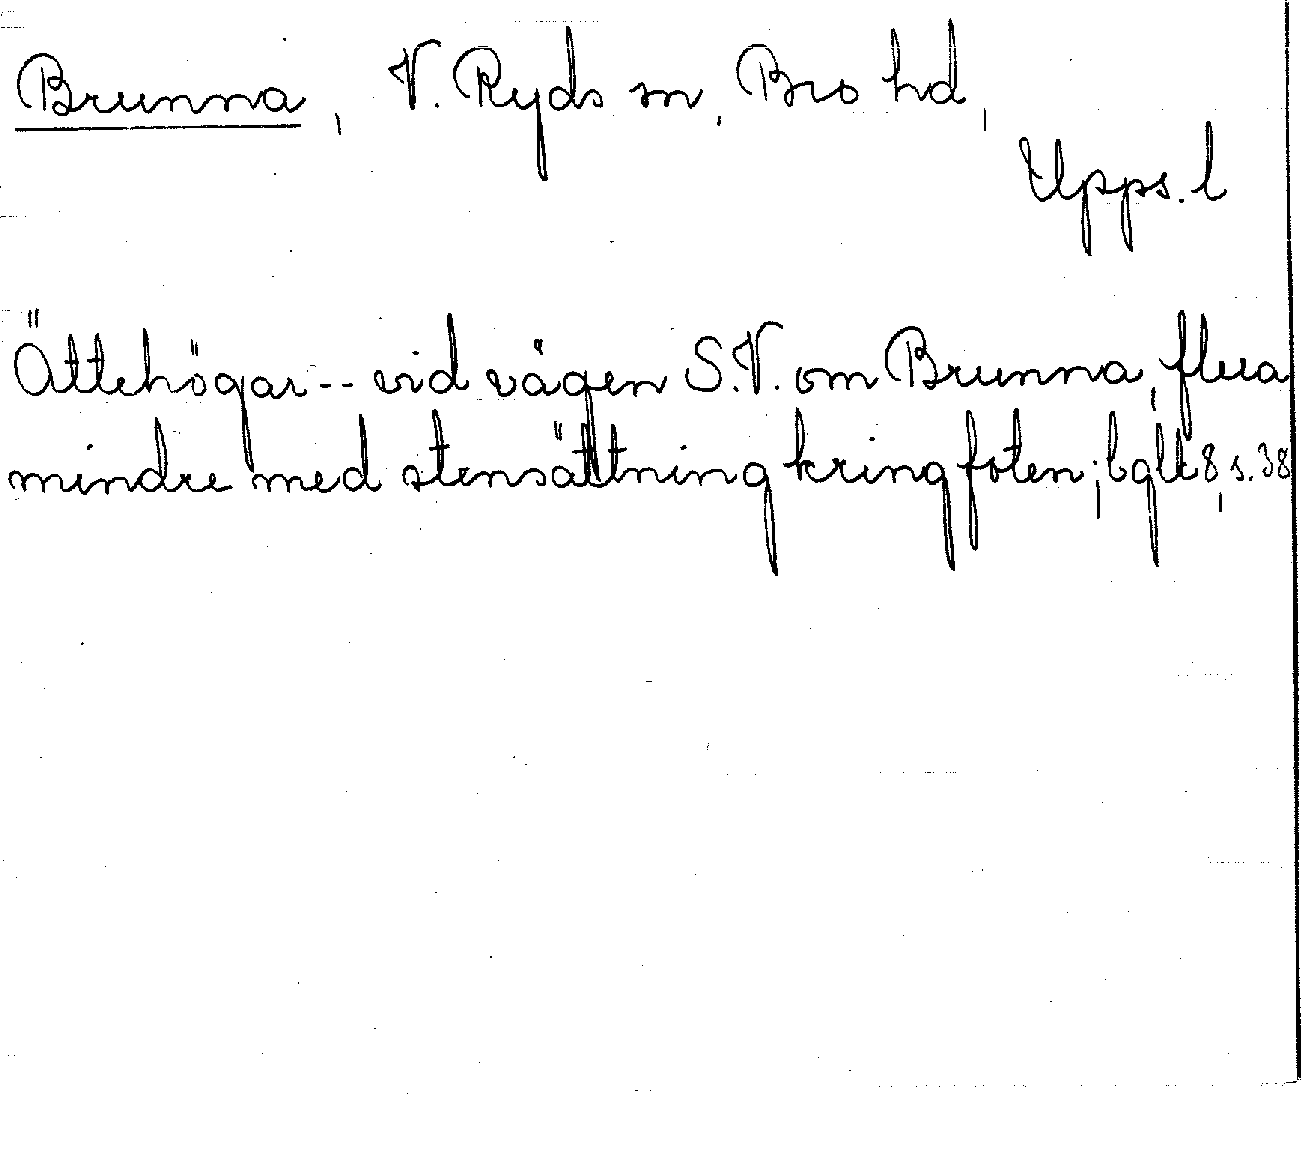 Brunna, V. Ryds sn, Bro hd,
Upps. l
Ättehögar -- vid vägen S.V. om Brunna, flera
mindre med stensättning kring foten; bgl 8, s. 38